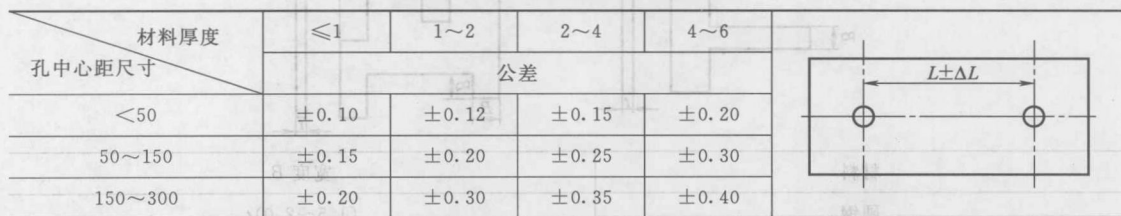 材料厚度
孔中心距尺寸
≤1 1~2 2~4 4~6
公差
<50 ±0.10 ±0.12 ±0.15 ±0.20
50~150 ±0.15 ±0.20 ±0.25 ±0.30
150~300 ±0.20 ±0.30 ±0.35 ±0.40
L±ΔL